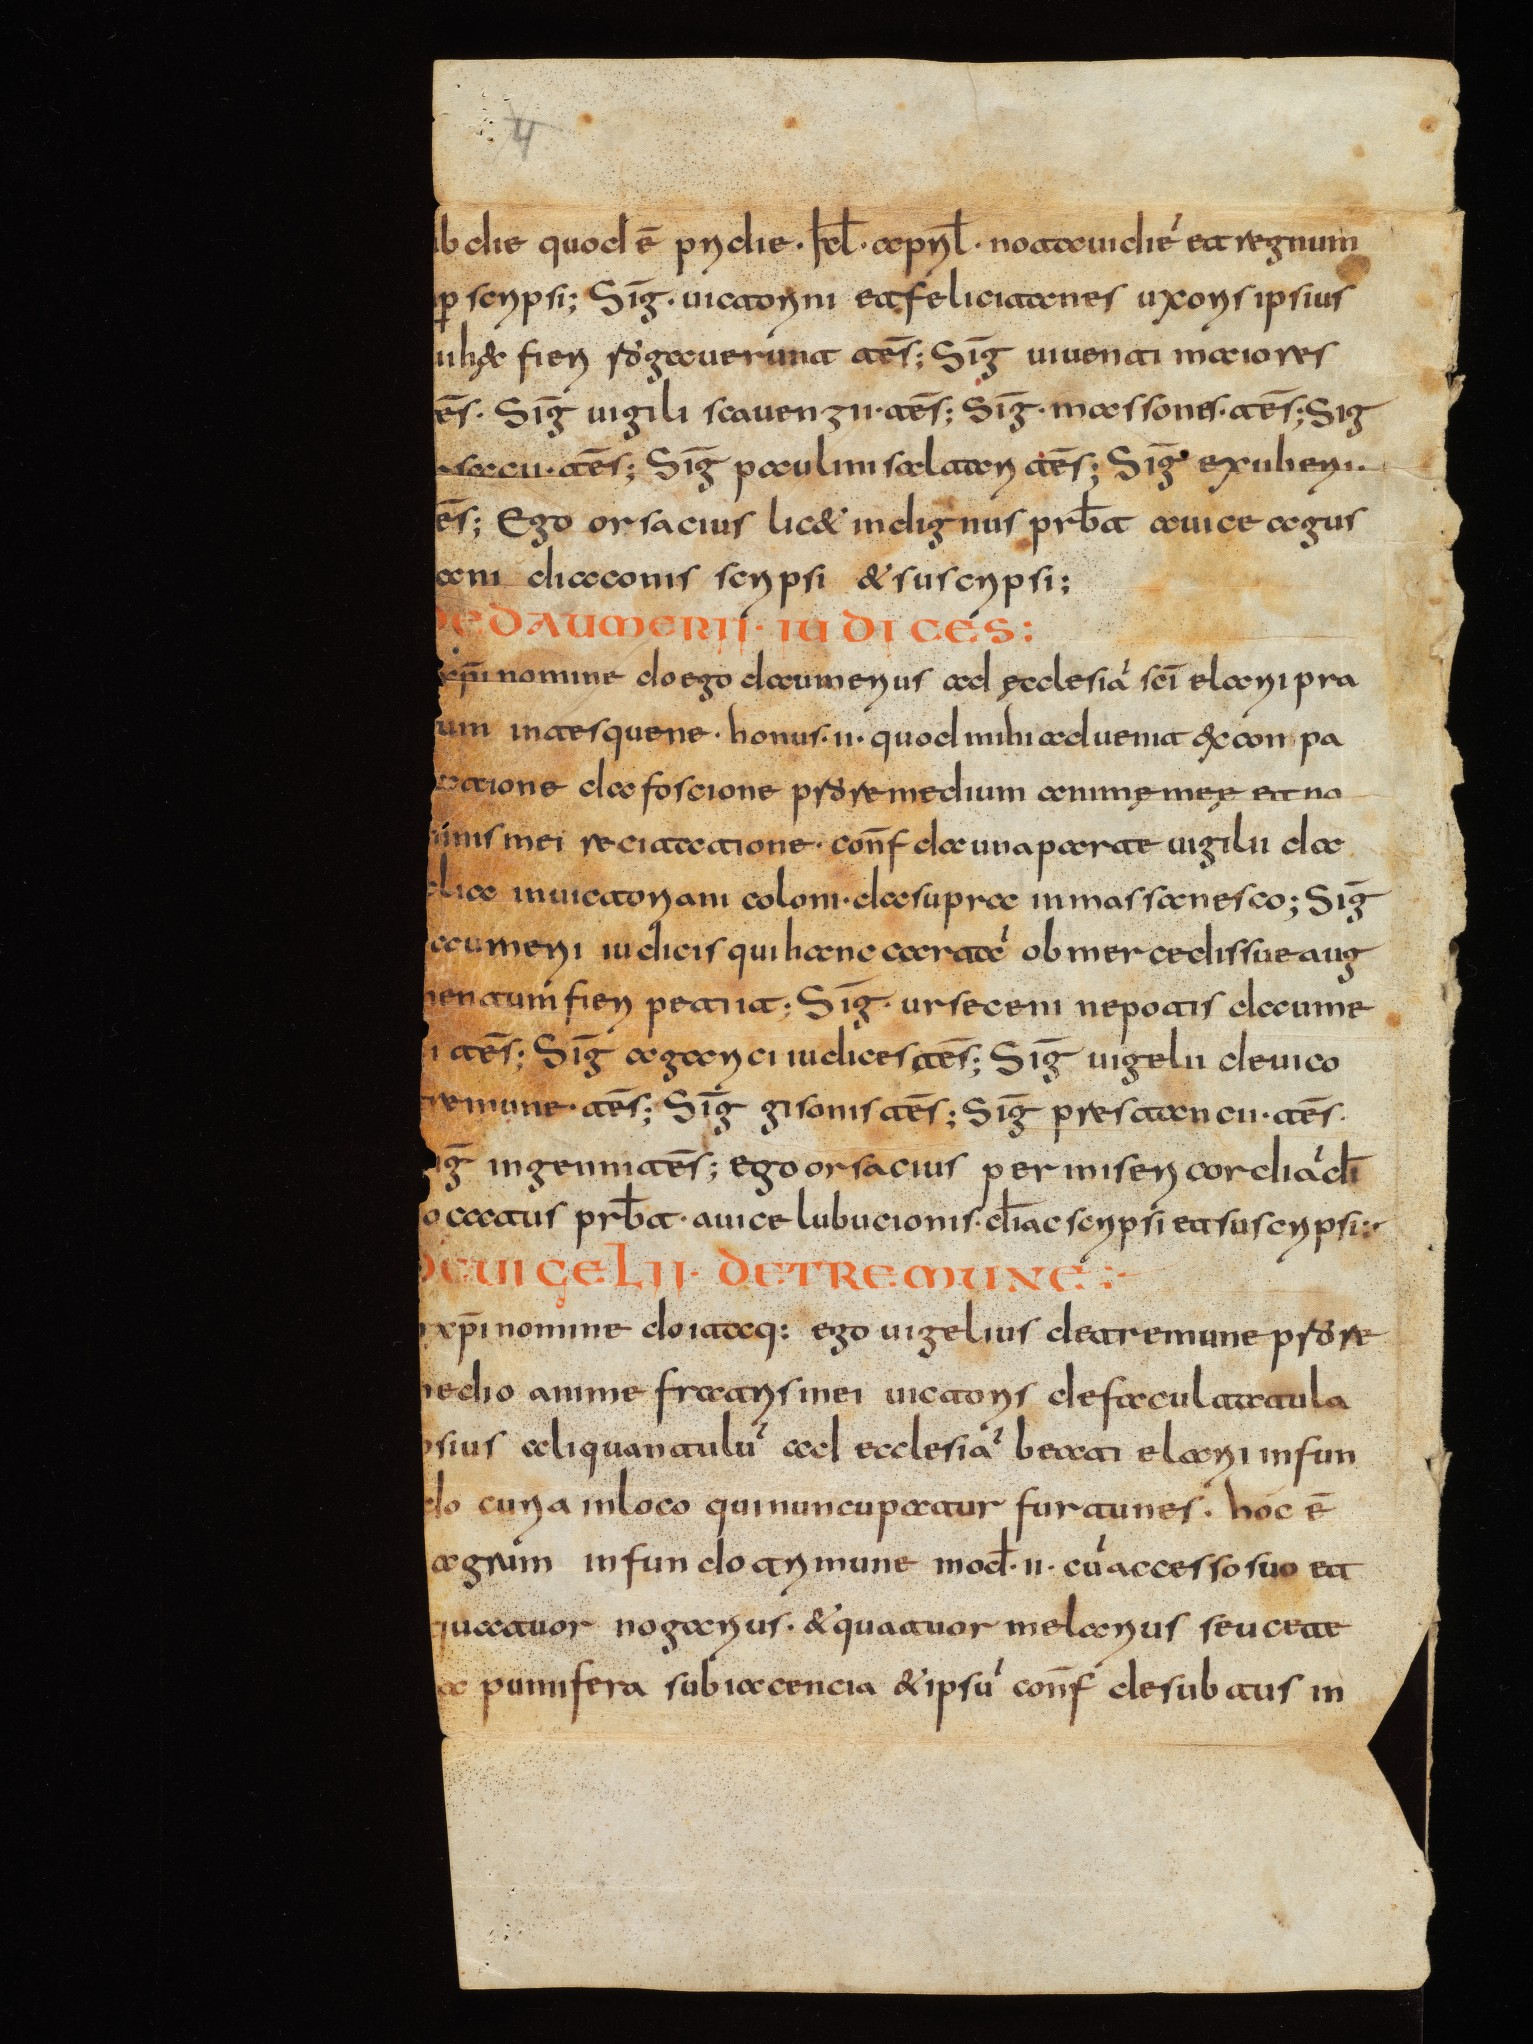 4
ub die quod ē pri die · kł · aprł · notaui diē et regnum
ꝑ scripsi; Sīg · uictorini et felicitanes uxoris ipsius
hec fieri rogauerunt tēs; Sīg uiuenti maiores
tēs · Sīg uigili stauenzii · tēs; Sīg · massones · tēs; Sig
sacu · tēs; Sīg paulini saltari tēs; Sīg exuberii
tēs; Ego orsacius lic& indignus prƀt a uice agus
ani diaconis scripsi & suscripsi;
DE DAUMERII · IUDICES:
xp̄i nomine do ego daumerius ad ęcclesiā sc̄i elarii pra
um in tesquene · honus · ii · quod mihi aduenit ex con pa
racione da foscione pro remedium animę meę et no
minis mei recitatione · conf̄ da una parte uigilii da
alia in uictoriani coloni · da supra in massanesco; Sīg
aumeri iudicis qui hanc cartā ob mercedis sue aug
mentum fieri petiit; Sīg · urseceni nepotis daume
ri tēs; Sīg aganci iudices tēs; Sīg uigelii de uico
tremune · tēs; Sīg gisonis tēs; Sīg prestancii · tēs ·
Sīg ingenui tēs; ego orsacius per misericordiā dī
uocatus prƀt · a uice lubucionis · diac scripsi et suscripsi:
DE UIGELII · DE TREMUNE:
xp̄i nomine do itaq: ego uigelius de tremune pro re
medio anime fratris mei uictoris de facultatula
ipsius aliquantulū ad ecclesiā beati elarii in fun
do curia in loco qui nuncupatur furtunes · hoc ē
agrum in fundo trimune mod̄ · ii · cū accesso suo et
quatuor nogarius · & quatuor melarius seu cete
ra pumifera subiacencia & ipsū conf̄ de subtus in